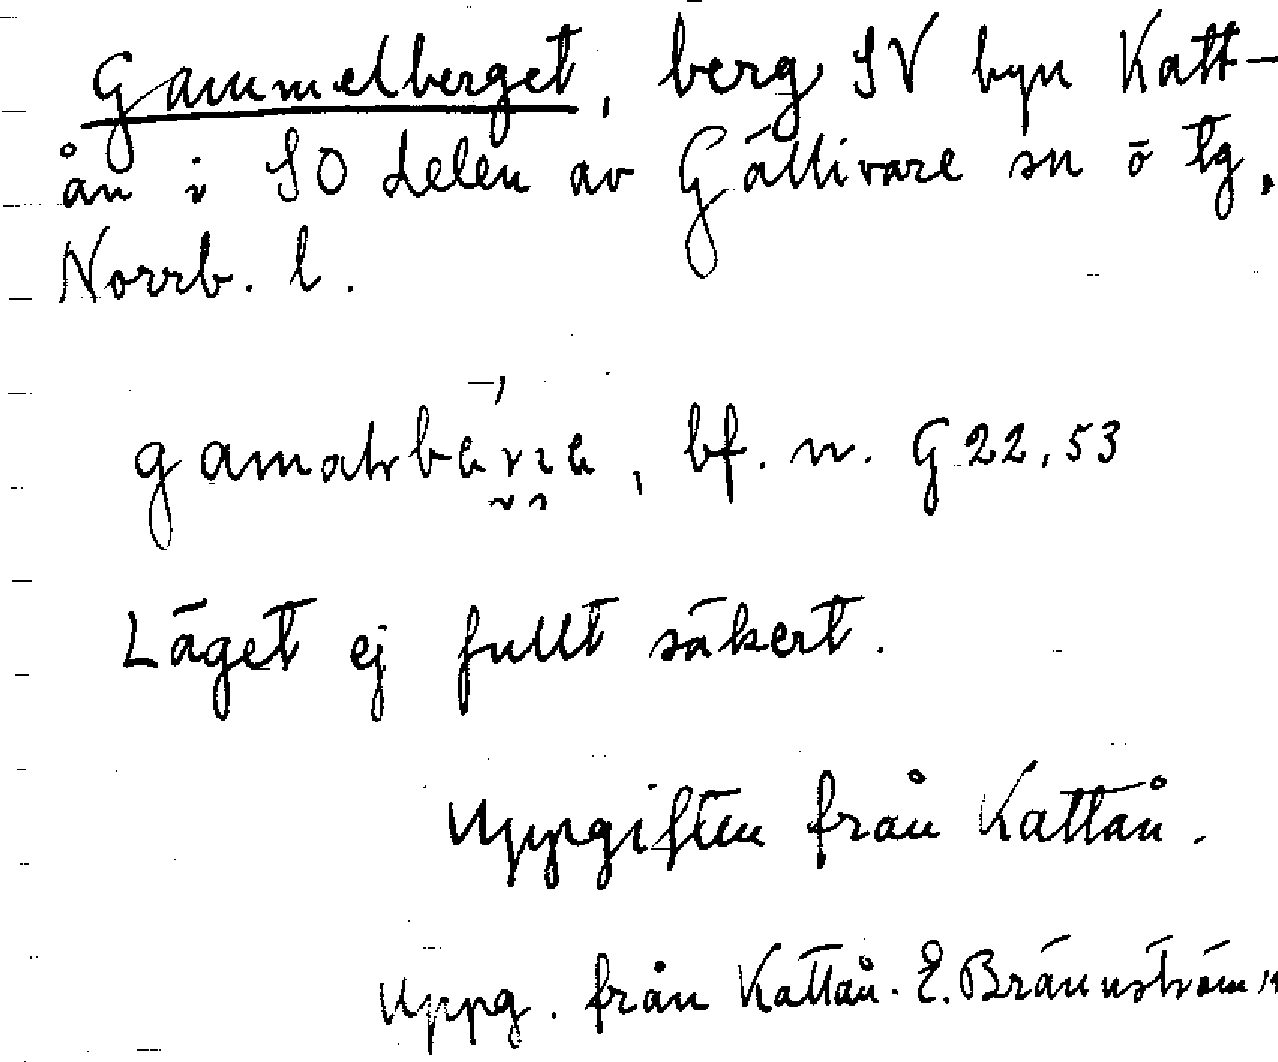 Gammelberget, berg SV byn Katt-
ån i SO delen av Gällivare sn ö tg,
Norrb. l.
bf. n. G 22, 53
Läget ej fullt säkert.
Uppgiften från Kattån.
Uppg. från Kattån. E. Brännström